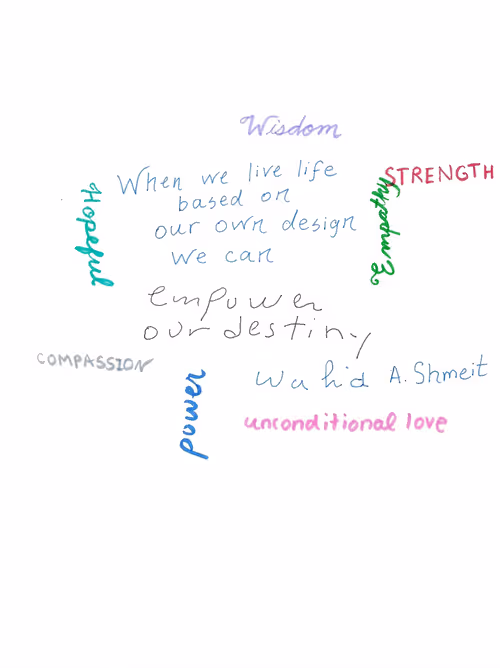 Wisdom
STRENGTH
When we live life
based on
our own design
we can
Hopeful
Empathy
empower
our destiny
COMPASSION
power
Wahid A. Shmeit
unconditional love